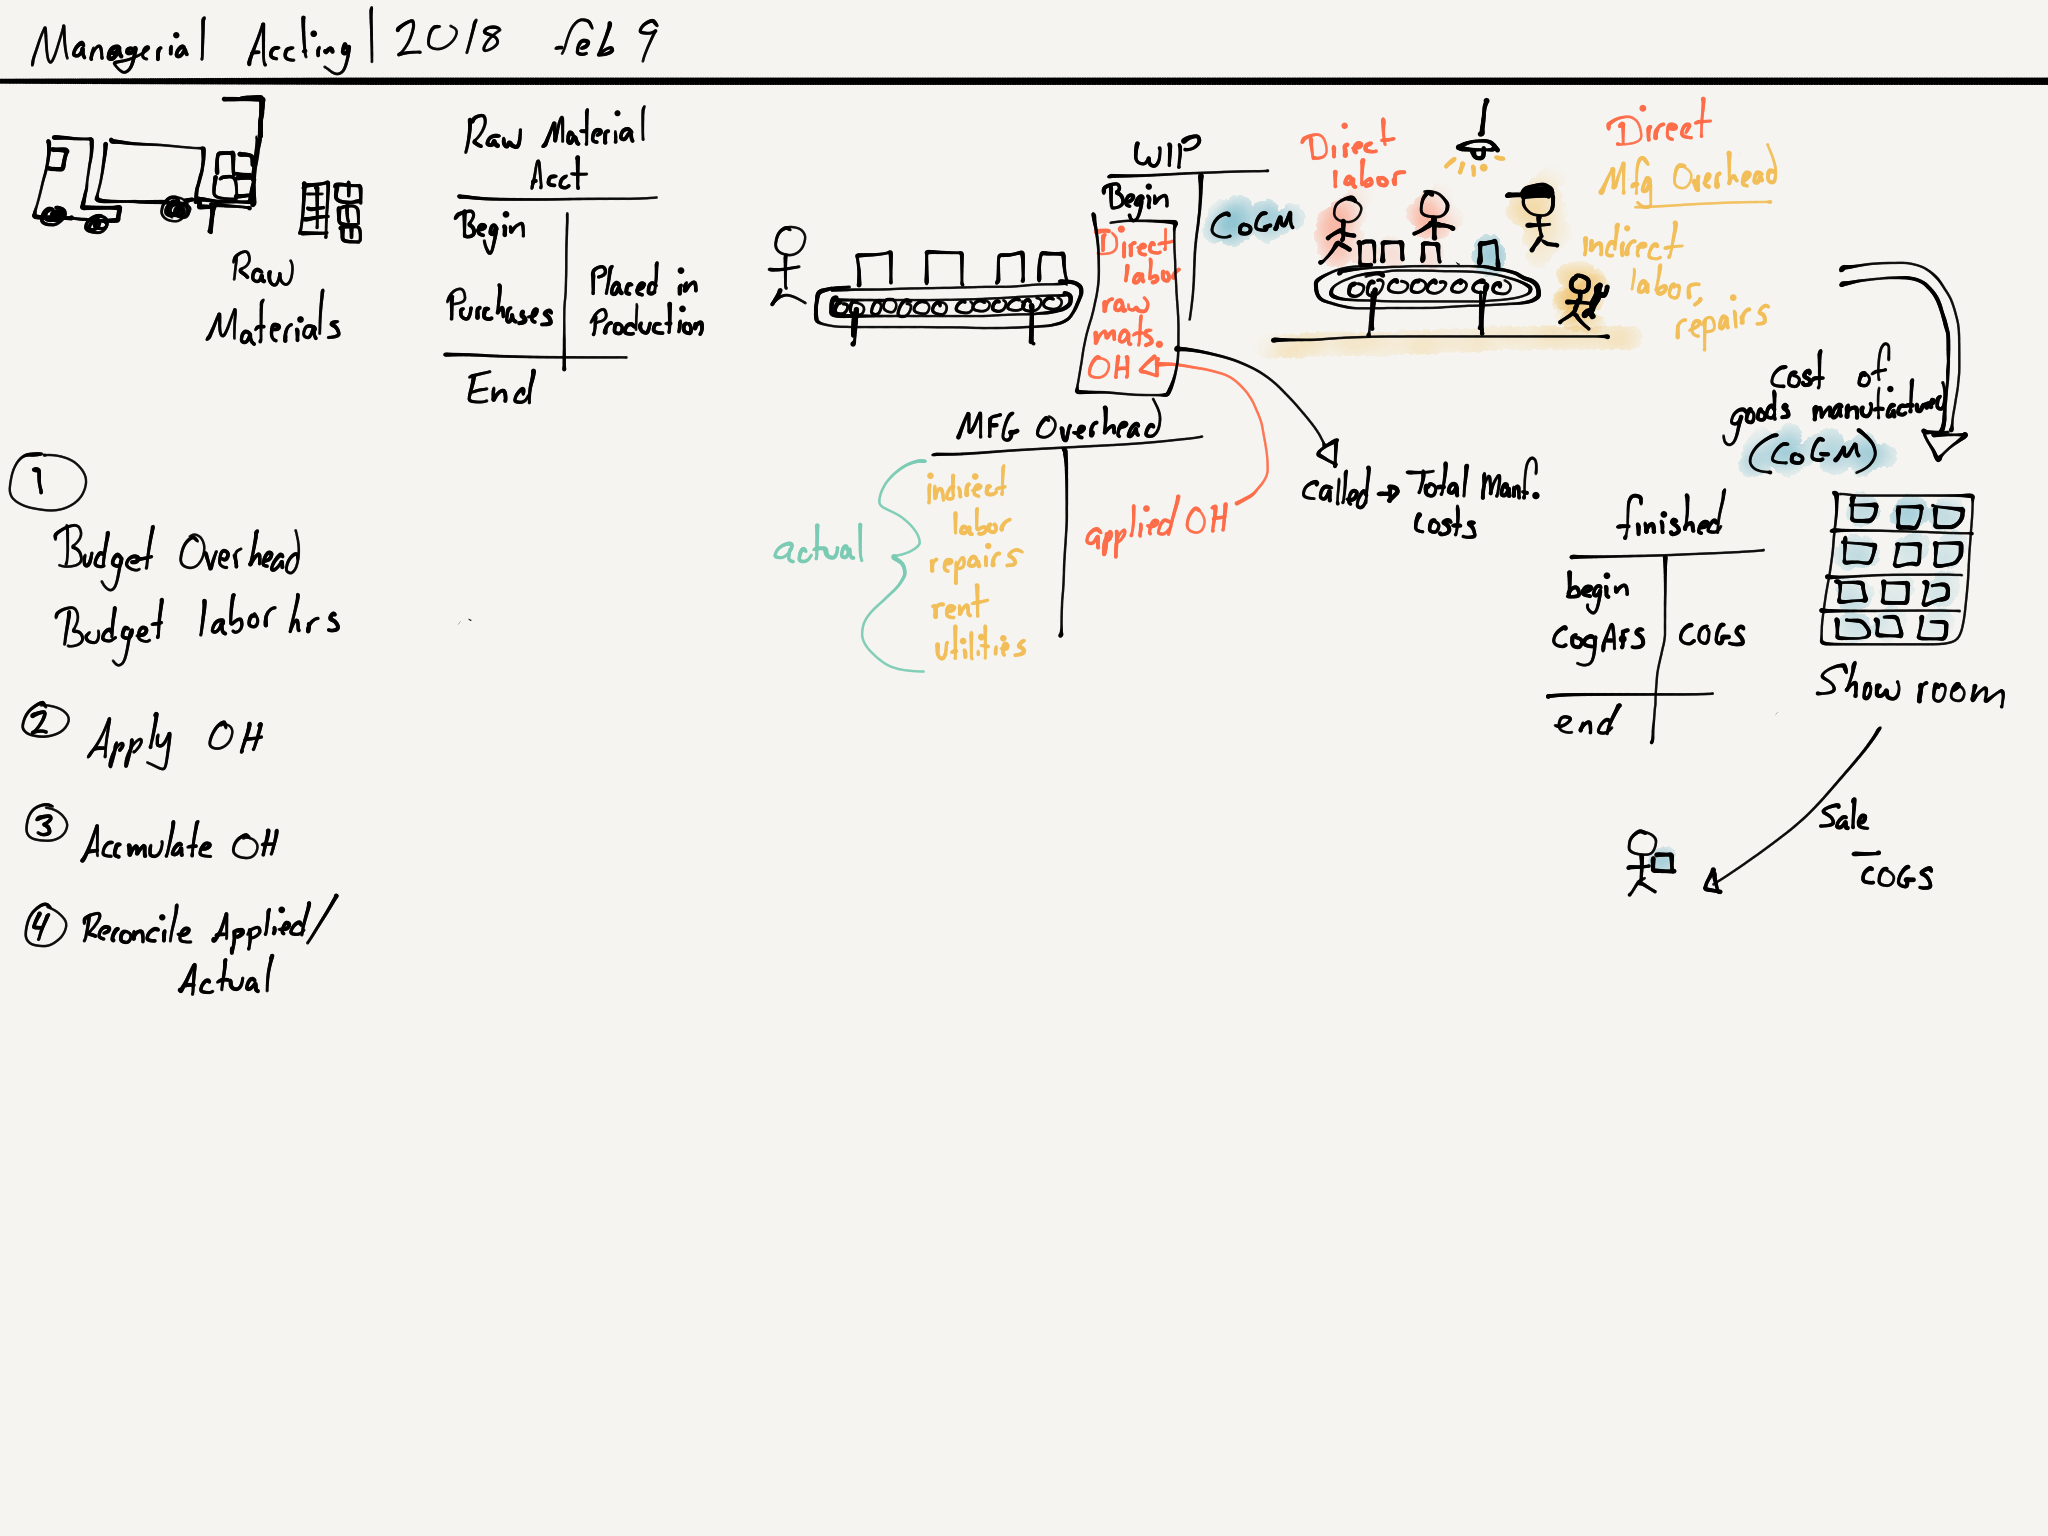 Managerial Accting | 2018 feb 9
Raw
Materials
Raw Material
Acct
Begin
Purchases
Placed in
Production
End
WIP
Begin
Direct
labor
raw
mats.
OH
CoGM
Direct
labor
Direct
Mfg Overhead
indirect
labor,
repairs
MFG Overhead
actual
indirect
labor
repairs
rent
utilities
applied OH
called → Total Manf.
costs
Cost of
goods manufactured
(CoGM)
finished
begin
CogAfs
COGS
end
Show room
Sale
COGS
1
Budget Overhead
Budget labor hrs
2 Apply OH
3 Accmulate OH
4 Reconcile Applied/
Actual